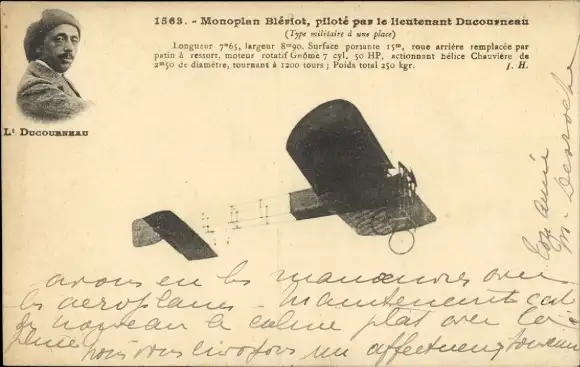 1563. - Monoplan Blériot, piloté par le lieutenant Ducourneau
(Type militaire à une place)
Longueur 7m65, largeur 8m90. Surface portante 15m, roue arrière remplacée par
patin à ressort, moteur rotatif Gnôme 7 cyl. 50 HP, actionnant hélice Chauvière de
2m50 de diamètre, tournant à 1200 tours ; Poids total 250 kgr.
J. H.
Lt DUCOURNEAU
avons eu les manœuvres avec
les aéroplanes - maintenant c'est
de nouveau le calme plat avec la
nous vous envoyons un affectueux
amie
M. Desroches